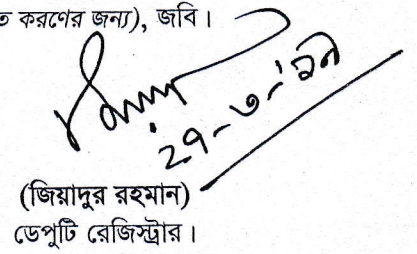 ত করণের জন্য), জবি।
২৭-৩-'১৭
(জিয়াদুর রহমান)
ডেপুটি রেজিস্ট্রার।